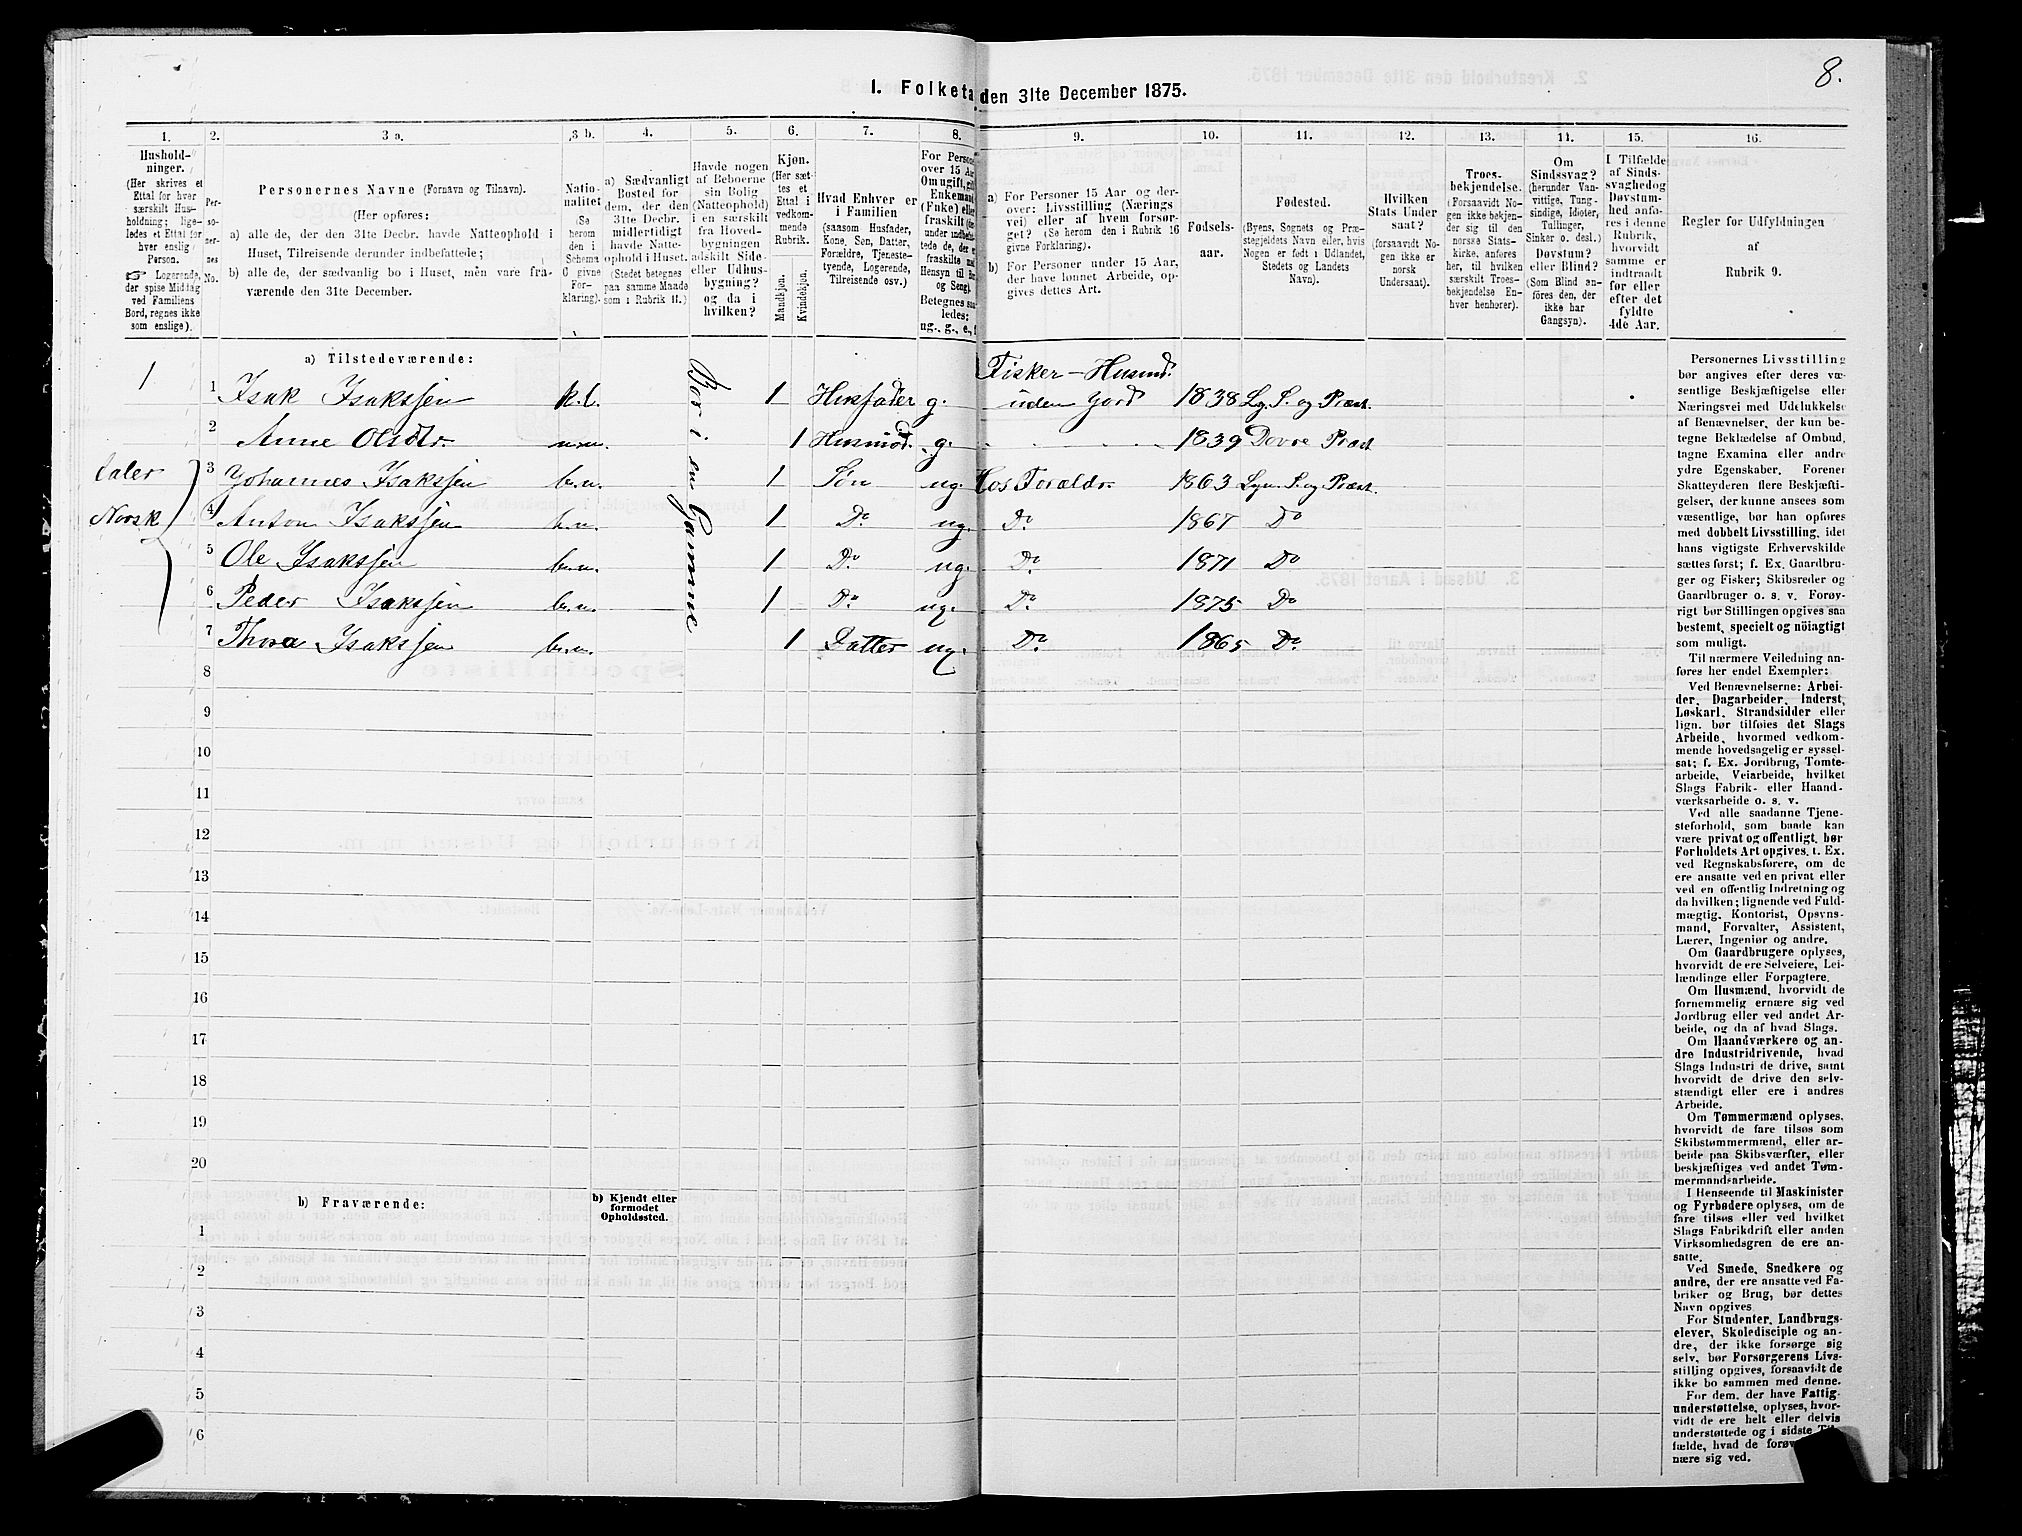 8.
1. Folketa den 31te December 1875.
1. 2. 3 a. 3 b. 4. 5. 6. 7. 8. 9. 10. 11. 12. 13. 14. 15. 16.
Hushold-
ninger.
(Her skrives et
Ettal for hver
særskilt Hus-
holdning; lige-
ledes et Ettal for
hver enslig
Person.
☞ Logerende,
der spise Middag
ved Familiens
Bord, regnes ikke
som enslige).
Per-
so-
ner-
nes
No.
Personernes Navne (Fornavn og Tilnavn).
(Her opføres:
a) alle de, der den 31te Decbr. havde Natteophold i
Huset, Tilreisende derunder indbefattede;
b) alle de, der sædvanlig bo i Huset, men vare fra-
værende den 31te December.
Natio-
nalitet
(Se
herom
den i
Schema
6 givne
For-
klaring).
a) Sædvanligt
Bosted for
dem, der den
31te Decbr.
midlertidigt
havde Natte-
ophold i Huset.
(Stedet betegnes
paa samme Maade
som i Rubrik 11.)
Havde nogen
af Beboerne
sin Bolig
(Natteophold)
i en særskilt
fra Hoved-
bygningen
adskilt Side-
eller Udhus-
bygning?
og da i
hvilken?
Kjøn.
(Her sæt-
tes et
Ettal i
vedkom-
mende
Rubrik.
Mandkjøn.
Kvindekjøn.
Hvad Enhver er
i Familien
(saasom Husfader,
Kone, Søn, Datter,
Forældre, Tjeneste-
tyende, Logerende,
Tilreisende osv.)
For Persone
over 15 Aar
Om ugift, gif
Enkemand
(Enke) elle
fraskilt (der
under indbefat-
tede de, der e
fraskilte me
Hensyn til Bor
og Seng).
Betegnes saa
ledes:
ug., g., e., f
a) For Personer 15 Aar og der-
over: Livsstilling (Nærings
vei) eller af hvem forsør-
get? (Se herom den i Rubrik 16
givne Forklaring).
b) For Personer under 15 Aar,
der have lønnet Arbeide, op-
gives dettes Art.
Fødsels-
aar.
Fødested.
(Byens, Sognets og Præ-
stegjeldets Navn eller, hvis
Nogen er født i Udlandet,
Stedets og Landets
Navn).
Hvilken
Stats Under
saat?
(forsaavidt No-
gen ikke er
norsk
Undersaat).
Troes-
bekjendelse.
(Forsaavidt No-
gen ikke bekjen-
der sig til den
norske Stats-
kirke, anføres
her, til hvilken
særskilt Troes-
bekjendelse En-
hver henhører).
Om
Sindssvag?
(herunder Van-
vittige, Tung-
sindige, Idioter,
Tullinger,
Sinker o. desl.)
Døvstum?
eller Blind?
(Som Blind an-
føres den, der
ikke har
Gangsyn).
I Tilfælde
af Sinds-
svaghed og
Døvstum-
hed anfø-
res i denne
Rubrik,
hvorvidt
samme er
indtraadt
før eller
efter det
fyldte
4de Aar.
Regler for Udfyldningen
af
Rubrik 9.
a) Tilstedeværende:
Bor i en Gamme
Fisker - Husmd.
1 1 Isak Isakssen k.l. 1 Husfader g. uden Jord 1838 Ly. S. og Præst.
2 Anne Olsdtr. n.n. 1 Husmod. g. 1839 Dovre Præst
taler 3 Johannes Isakssen b.n. 1 Søn ug. Hos Forældr. 1863 Lyn. S. og Præst.
Norsk 4 Anton Isakssen b.n. 1 Do. ug. Do. 1867 Do
5 Ole Isakssen b.n. 1 Do. ug. Do. 1871 Do
6 Peder Isakssen b.n. 1 Do. ug. Do. 1875 Do
7 Thora Isakssen b.n. 1 Datter ug. Do. 1865 Do.
8
9
10
11
12
13
14
15
16
17
18
19
20
b) Fraværende:
b) Kjendt eller
formodet
Opholdssted.
1
2
3
4
5
6
Personernes Livsstilling
bør angives efter deres væ-
sentlige Beskjæftigelse eller
Næringsvei med Udelukkelse
af Benævnelser, der kun be-
tegne Beklædelse af Ombud,
tagne Examina eller andre
ydre Egenskaber. Forener
Skatteyderen flere Beskjæfti-
gelser, der kunne ansees som
væsentlige, bør han opføres
med dobbelt Livsstilling, idet
hans vigtigste Erhvervskilde
sættes først; f. Ex. Gaardbru-
ger og Fisker; Skibsreder og
Gaardbruger o. s. v. Forøv-
rigt bør Stillingen opgives saa
bestemt, specielt og nöiagtigt
som muligt.
Til nærmere Veiledning an-
føres her endel Exempler:
Ved Benævnelserne: Arbei-
der, Dagarbeider, Inderst,
Løskarl, Strandsidder eller
lign. bør tilføies det Slags
Arbeide, hvormed vedkom-
mende hovedsagelig er syssel-
sat; f. Ex. Jordbrug, Tomte-
arbeide, Veiarbeide, hvilket
Slags Fabrik- eller Haand-
værksarbeide o. s. v.
Ved alle saadanne Tjene-
steforhold, som baade kan
være privat og offentligt, bør
Forholdets Art opgives, f. Ex.
ved Regnskabsførere, om de
ere ansatte ved en privat eller
ved en offentlig Indretning og
da hvilken; lignende ved Fuld-
mægtig, Kontorist, Opsyns-
mand, Forvalter, Assistent,
Lærer, Ingeniør og andre.
Om Gaardbrugere oplyses,
hvorvidt de ere Selveiere, Lei-
lændinge eller Forpagtere.
Om Husmænd, hvorvidt de
fornemmelig ernære sig ved
Jordbrug eller ved andet Ar-
beide, og da af hvad Slags.
Om Haandværkere og an-
dre Industridrivende, hvad
Slags Industri de drive, samt
hvorvidt de drive den selv-
stændigt eller ere i andres
Arbeide.
Om Tømmermænd oplyses,
hvorvidt de fare tilsøs som
Skibstømmermænd, eller ar-
beide paa Skibsværfter, eller
beskjæftiges ved andet Tøm-
mermandsarbeide.
I Henseende til Maskinister
og Fyrbødere oplyses, om de
fare tilsøs eller ved hvilket
Slags Fabrikdrift eller anden
Virksomhedsgren de ere an-
satte.
Ved Smede, Snedkere og
andre, der ere ansatte ved Fa-
briker og Brug, bør dettes
Navn opgives
For Studenter, Landbrugs-
elever, Skoledisciple og an-
dre, der ikke forsørge sig
selv, bør Forsørgerens Livs-
stilling opgives, forsaavidt de
ikke bo sammen med denne.
For dem, der have Fattig-
understøttelse, oplyses, hvor-
vidt de ere helt eller delvis
understøttede og i sidste Til-
fælde, hvad de forøv
nære sig ved.